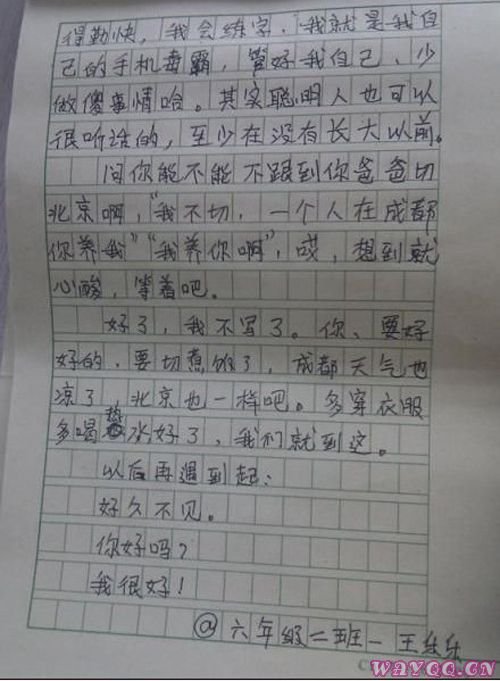 得勤快，我会练字，"我就是我自
己的手机毒霸，管好我自己，少
做傻事情哈。其实聪明人也可以
很听话的，至少在没有长大以前。
问你能不能不跟到你爸爸切
北京啊，"我不切，一个人在成都
你养我""我养你啊"，哎，想到就
心酸，等着吧。
好了，我不写了。你、要好
好的，要切煮饭了，成都天气也
凉了，北京也一样吧。多穿衣服
多喝热水好了，我们就到这。
以后再遇到起：
好久不见。
你好吗？
我很好！
@六年级二班－王乐乐
WAYQQ.CN